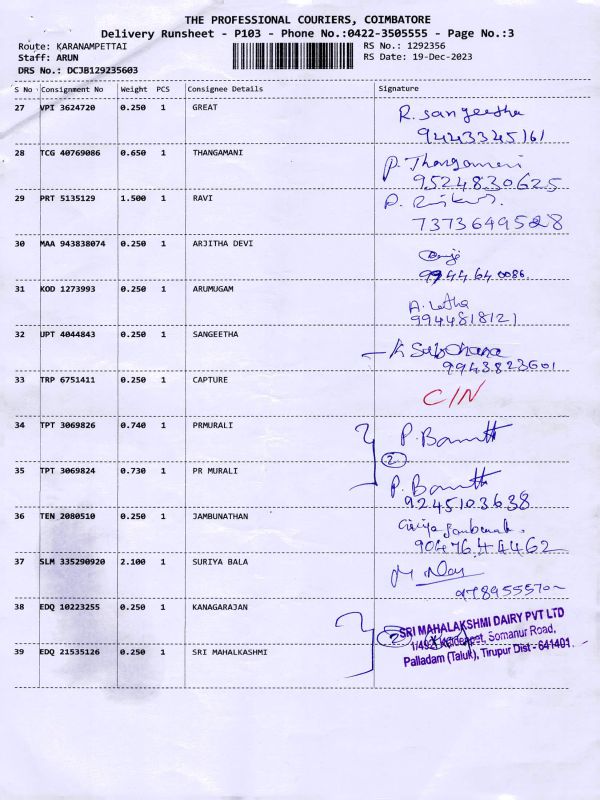 THE PROFESSIONAL COURIERS, COIMBATORE
Delivery Runsheet - P103 - Phone No.:0422-3505555 - Page No.:3
Route: KARANAMPETTAI RS No.: 1292356
Staff: ARUN RS Date: 19-Dec-2023
DRS No.: DCJB129235603
S No Consignment No Weight PCS Consignee Details Signature
27 VPI 3624720 0.250 1 GREAT R. Sangeetha
9443345161
28 TCG 40769086 0.650 1 THANGAMANI P. Thangamani
9524830625
29 PRT 5135129 1.500 1 RAVI
7373649528
30 MAA 943838074 0.250 1 ARJITHA DEVI
9944640086.
31 KOD 1273993 0.250 1 ARUMUGAM A. Latha
9944818121
32 UPT 4044843 0.250 1 SANGEETHA
9943823601
33 TRP 6751411 0.250 1 CAPTURE C/N
34 TPT 3069826 0.740 1 PRMURALI P.
2
35 TPT 3069824 0.730 1 PR MURALI P.
9245103638
36 TEN 2080510 0.250 1 JAMBUNATHAN
9047644462
37 SLM 335290920 2.100 1 SURIYA BALA
38 EDQ 10223255 0.250 1 KANAGARAJAN
2 SRI MAHALAKSHMI DAIRY PVT LTD
Somanur Road,
39 EDQ 21535126 0.250 1 SRI MAHALKASHMI Palladam (Taluk), Tirupur Dist - 641401.